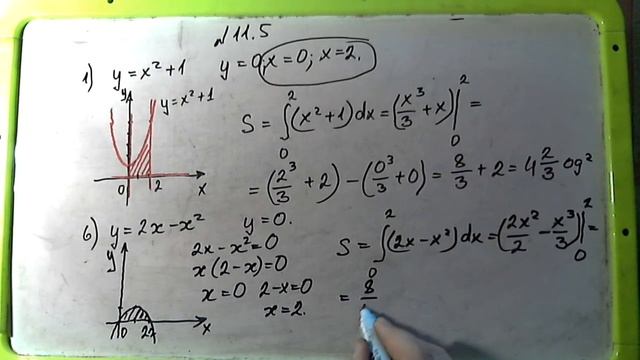 №11.5
1) y = x² + 1 y = 0; x = 0; x = 2.
y
y = x² + 1
0 2 x
S = ∫₀² (x² + 1) dx = (x³/3 + x) |₀² =
= (2³/3 + 2) − (0³/3 + 0) = 8/3 + 2 = 4 2/3 од²
6) y = 2x − x² y = 0.
y
0 2 x
2x − x² = 0
x(2 − x) = 0
x = 0 2 − x = 0
x = 2.
S = ∫₀² (2x − x²) dx = (2x²/2 − x³/3) |₀² =
= 8/